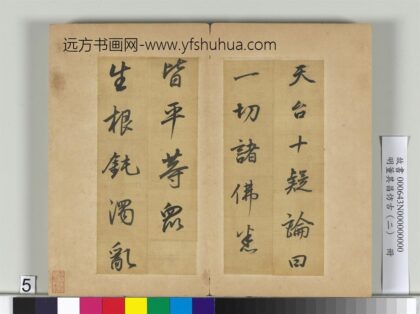 远方书画网-www.yfshuhua.com
天台十疑論曰
一切諸佛悉
皆平等眾
生根鈍濁亂
故書000643N000000000
明董其昌仿古（二） 冊
5